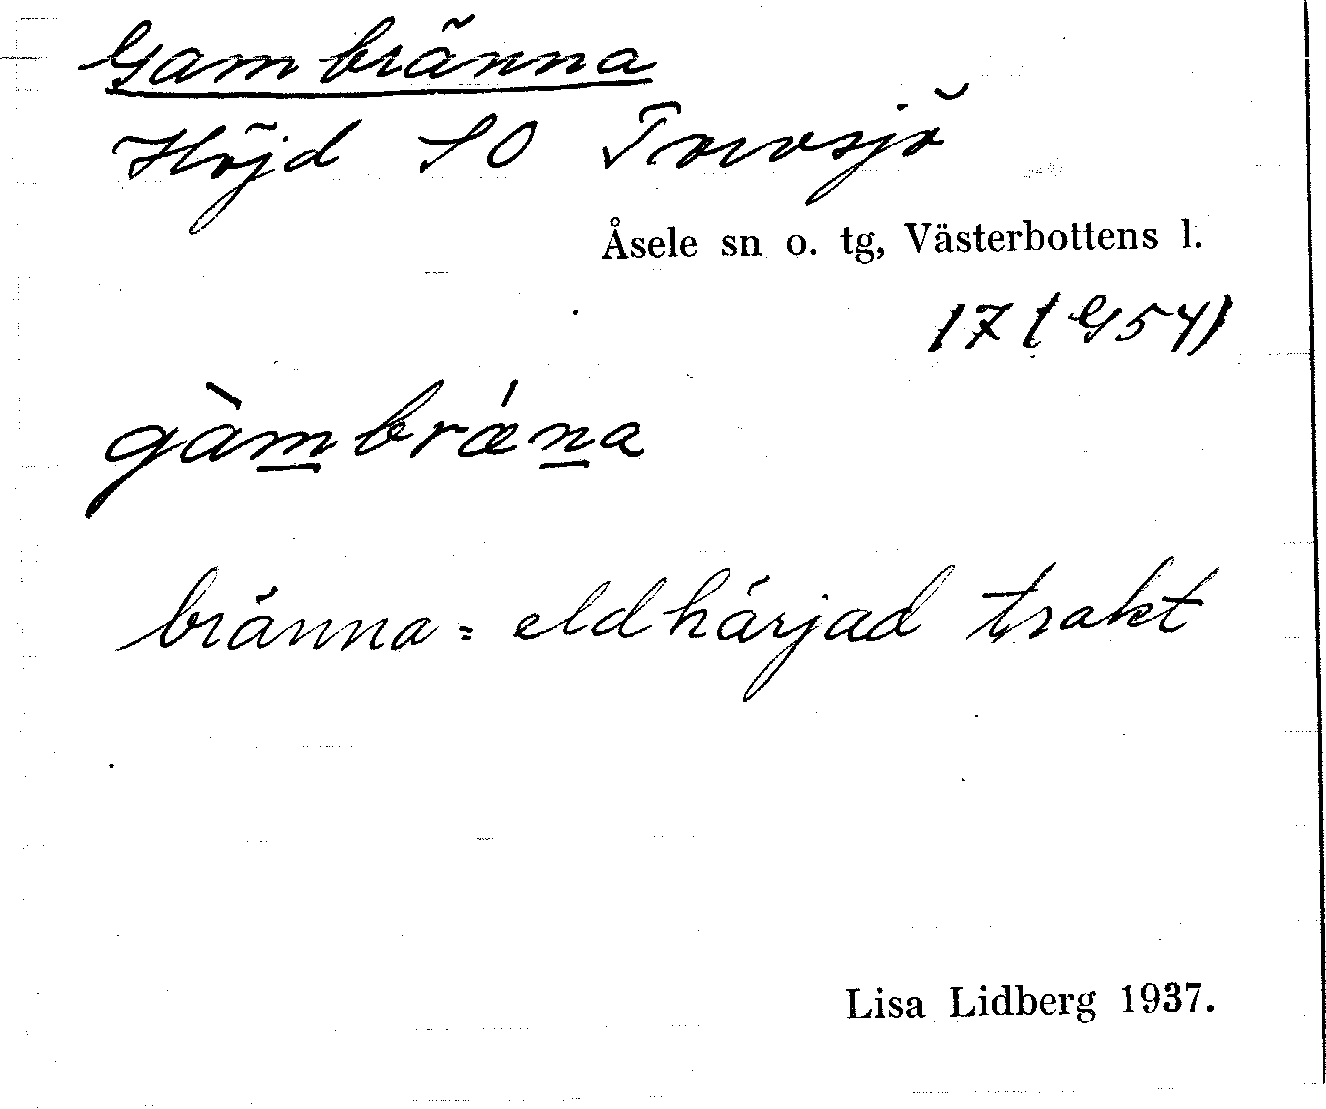 Gambränna
Höjd SO Torvsjö
Åsele sn o. tg, Västerbottens l.
17 (G54)
gàmbrǽna
bränna = eldhärjad trakt
Lisa Lidberg 1937.